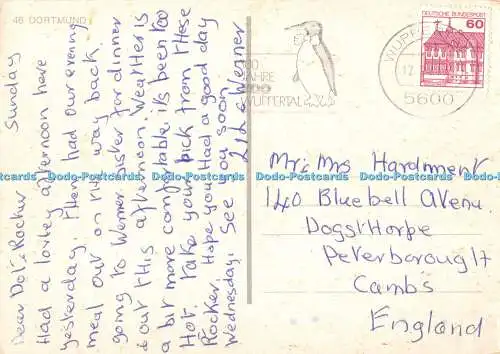 46 DORTMUND
Dear Dot & Rocker Sunday
Had a lovley afternoon here
yesterday. Then had our evening
meal out on the way back.
going to Werner Sister for dinner
& out this afternoon. Weather is
a bit more comfortable its been too
Hot. Take your pick from these
Rocker. Hope you Had a good day
Wednesday. See you soon
Lil & Werner
JAHRE
ZOO
WUPPERTAL
DEUTSCHE BUNDESPOST
60
WUPPE
5600
Mr & Mrs Hardment
140 Bluebell Avenu
Dogsthorpe
Peterborought
Cambs
England
Dodo-Postcards Dodo-Postcards Dodo-Postcards Dodo-Postcards Dodo-Postcards